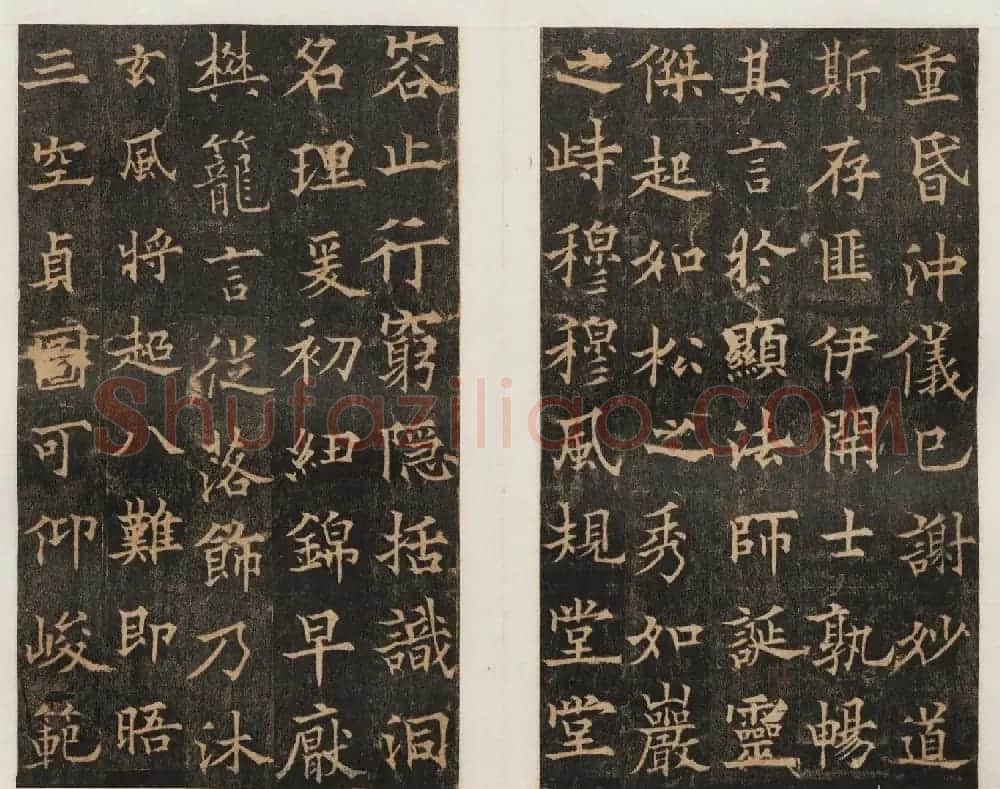 重昏沖儀已謝妙道
斯存匪伊開士孰暢
其言於顯法師誕靈
傑起如松之秀如巖
之峙穆〻穆〻風規堂堂
容止行窮隱括識洞
名理爰初紐錦早厭
樊籠言從落飾乃沐
玄風將超八難即晤
三空貞圖可仰峻範
Shufaziliao.COM